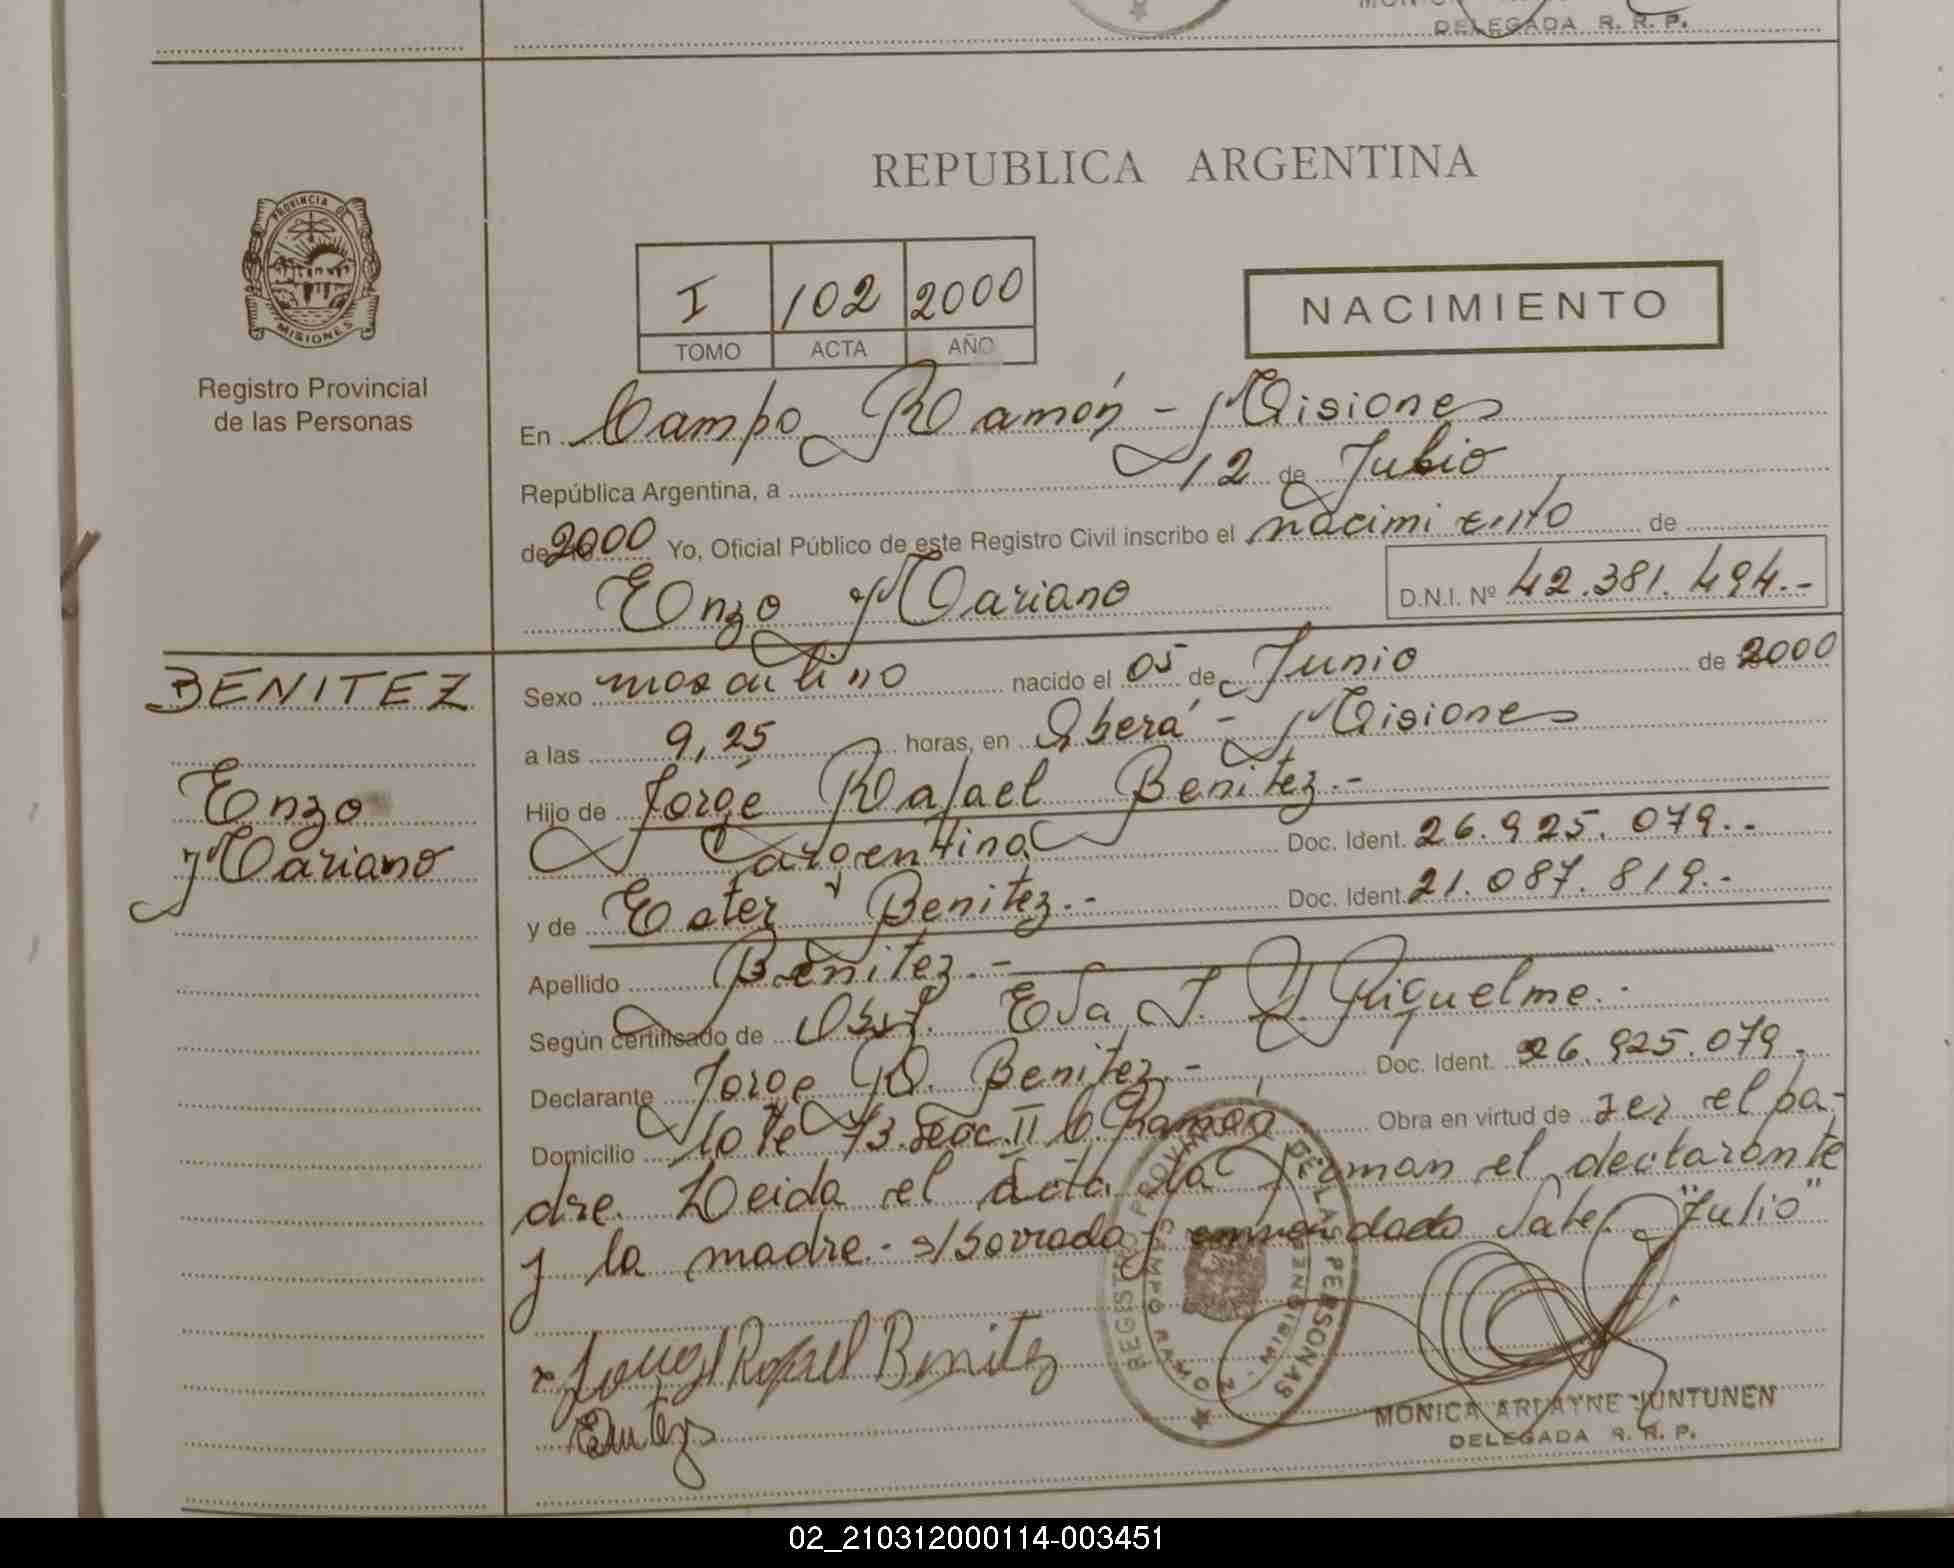 DELEGADA R. R. P.
REPUBLICA ARGENTINA
PROVINCIA DE
MISIONES
Registro Provincial
de las Personas
I 102 2000
TOMO ACTA AÑO
NACIMIENTO
En Campo Ramón - Misiones
República Argentina, a 12 de Julio
de 2000 Yo, Oficial Público de este Registro Civil inscribo el nacimiento de
Enzo Mariano D.N.I. Nº 42.381.494.-
BENITEZ
Enzo
Mariano
Sexo masculino nacido el 05 de Junio de 2000
a las 9,25 horas, en Oberá - Misiones
Hijo de Jorge Rafael Benitez.-
argentina Doc. Ident. 26.925.079.-
y de Ester Benitez.- Doc. Ident. 21.087.819.-
Apellido Benitez.-
Según certificado de Obst. Eva J. Y. Riquelme.-
Declarante Jorge R. Benitez.- Doc. Ident. 26.925.079.
Domicilio Lote 73 Secc. II C. Ramón Obra en virtud de ser el pa-
dre. Leida el acta la firman el declarante
y la madre.- s/borrado y enmendado Vale: "Julio"
Jorge Rafael Benitez
REGISTRO PROVINCIAL DE LAS PERSONAS
CAMPO RAMON - MISIONES
MONICA ARLAYNE JUNTUNEN
DELEGADA R. R. P.
02_210312000114-003451